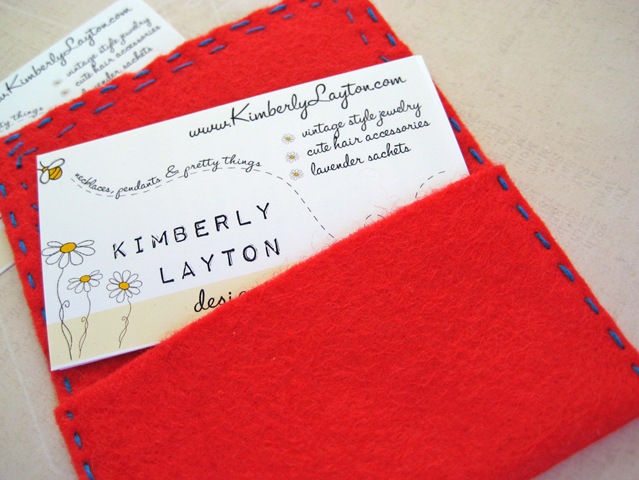 www.KimberlyLayton.com
vintage style jewelry
cute hair accessories
lavender sachets
necklaces, pendants & pretty things
KIMBERLY
LAYTON
www.KimberlyLayton.com
vintage style jewelry
cute hair accessories
lavender sachets
pretty things